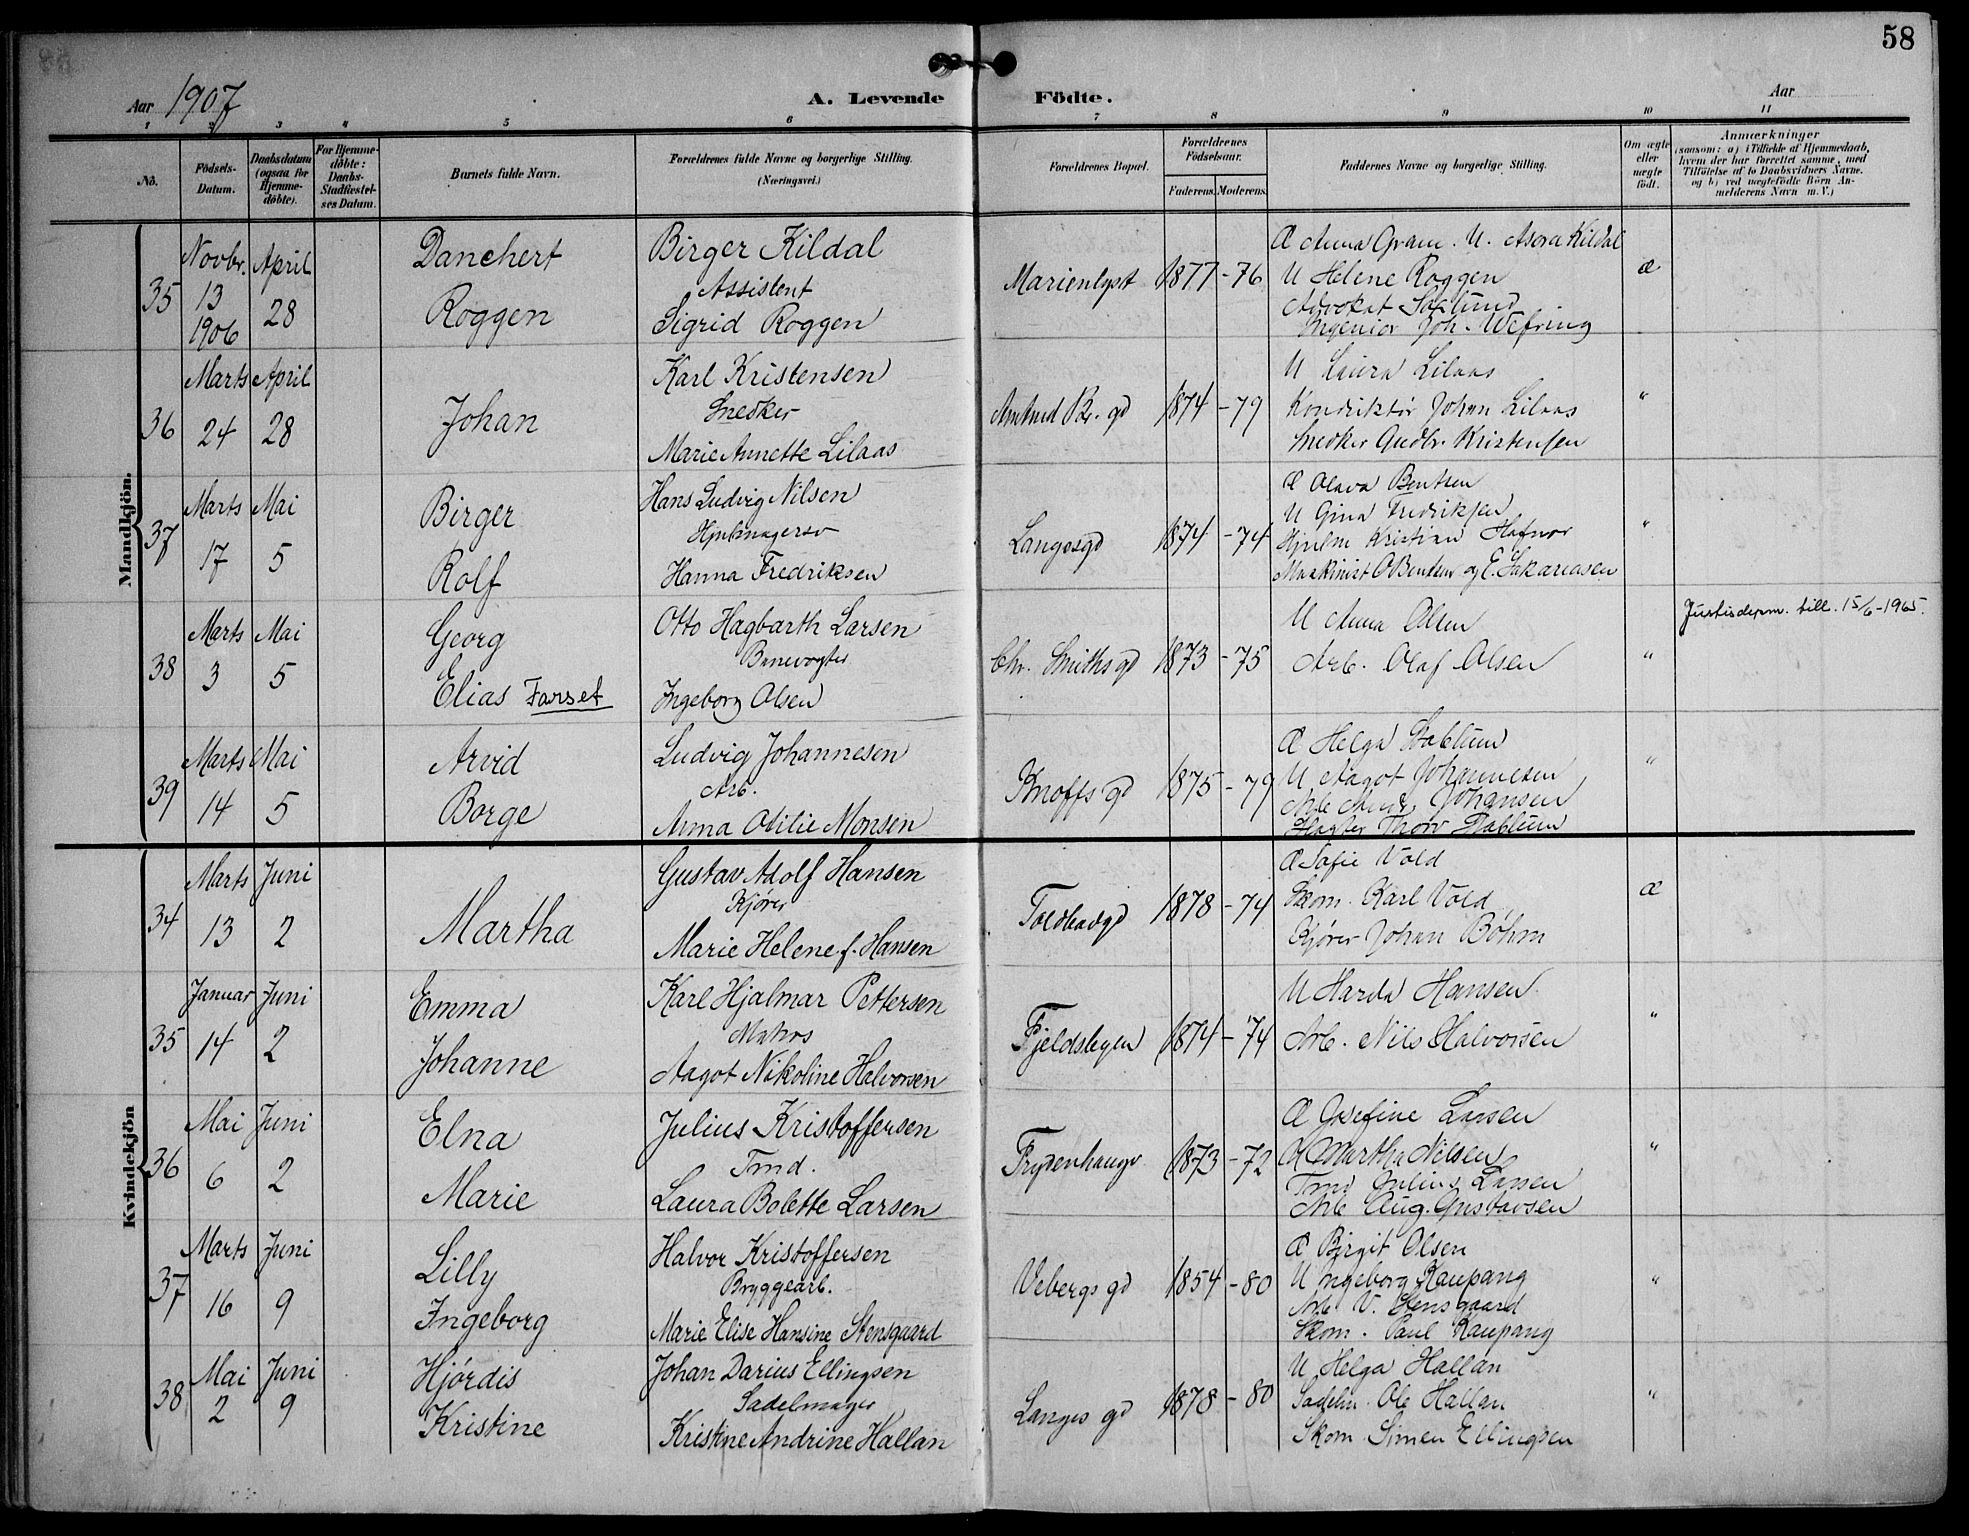 58
Aar 1907
A. Levende Födte.
Aar
1 2 3 4 5 6 7 8 9 10 11
No.
Födsels-Datum.
Daabsdatum (ogsaa for Hjemmedöbte).
For Hjemmedöbte: Daabs-Stadfæstelses Datum.
Barnets fulde Navn.
Forældrenes fulde Navne og borgerlige Stilling.
(Næringsvei.)
Forældrenes Bopæl.
Forældrenes Födselsaar.
Faderens. Moderens.
Faddernes Navne og borgerlige Stilling.
Om ægte eller uægte födt.
Anmærkninger
(saasom: a) i Tilfælde af Hjemmedaab, hvem der har forrettet samme, med Tilföielse af to Daabsvidners Navne. og b) ved uægtefödte Börn Anmelderens Navn m. V.)
Mandkjön.
35
Novbr. 13 1906
April 28
Danchert
Roggen
Birger Kildal
Assistent
Sigrid Roggen
Marienlyst
1877 - 76
Æ Anna Gram. U. Asora Kildal
U Helene Roggen
Advokat
Ingeniør Joh. Wefring
æ
36
Marts 24
April 28
Johan
Karl Kristensen
Snedker
Marie Annette Lilaas
Amtmd Br. gd
1874 - 79
U Laura Lilaas
Konduktör Johan Lilaas
Snedker Gudbr. Kristensen
"
37
Marts 17
Mai 5
Birger
Rolf
Hans Ludvig Nilsen
Hjulmagersv
Hanna Fredriksen
Langesgd
1874 - 74
Æ Olava Bentsen
U Gina Fredriksen
Hjulm Kristian Hafnor
Maskinist O Bentsen og E. Sakariasen
"
38
Marts 3
Mai 5
Georg
Elias Farset
Otto Hagbarth Larsen
Banevogter
Ingeborg Olsen
Chr. Smiths gd
1873 - 75
U Anna Olsen
Arb. Olaf Olsen
"
Justisdepm. till. 15/6-1965.
39
Marts 14
Mai 5
Arvid
Borge
Ludvig Johannesen
Arb.
Anna Otilie Monsen
Knoffs gd
1875 - 79
Æ Helga Stablum
U Aagot Johannesen
Arb Johansen
Slagter Thorv Stablum
"
Kvindekjön
34
Marts 13
Juni 2
Martha
Gustav Adolf Hansen
Kjörer
Marie Helene f. Hansen
Toldbodgd
1878 - 74
Æ Sofie Vold
Skom. Karl Vold
Kjörer Johan Böhm
æ
35
Januar 14
Juni 2
Emma
Johanne
Karl Hjalmar Pettersen
Matros
Aagot Nikoline Halvorsen
Fjeldslegen
1874 - 74
U Harda Hansen
Arb. Nils Halvorsen
"
36
Mai 6
Juni 2
Elna
Marie
Julius Kristoffersen
Tmd.
Laura Bolette Larsen
Frydenhaugv
1873 - 72
Æ Josefine Larsen
Æ Martha Nilsen
Tmd Julius Larsen
Arb Aug. Gustavsen
"
37
Marts 16
Juni 9
Lilly
Ingeborg
Halvor Kristoffersen
Bryggearb.
Marie Elise Hansine Stensgaard
Vebergs gd
1854 - 80
Æ Birgit Olsen
U Ingeborg Kaupang
Arb V. Stensgaard
Skom. Paul Kaupang
"
38
Mai 2
Juni 9
Hjördis
Kristine
Johan Darius Ellingsen
Sadelmager
Kristine Andrine Hallan
Langes gd
1878 - 80
U Helga Hallan
Sadelm. Ole Hallan
Skom Simen Ellingsen
"